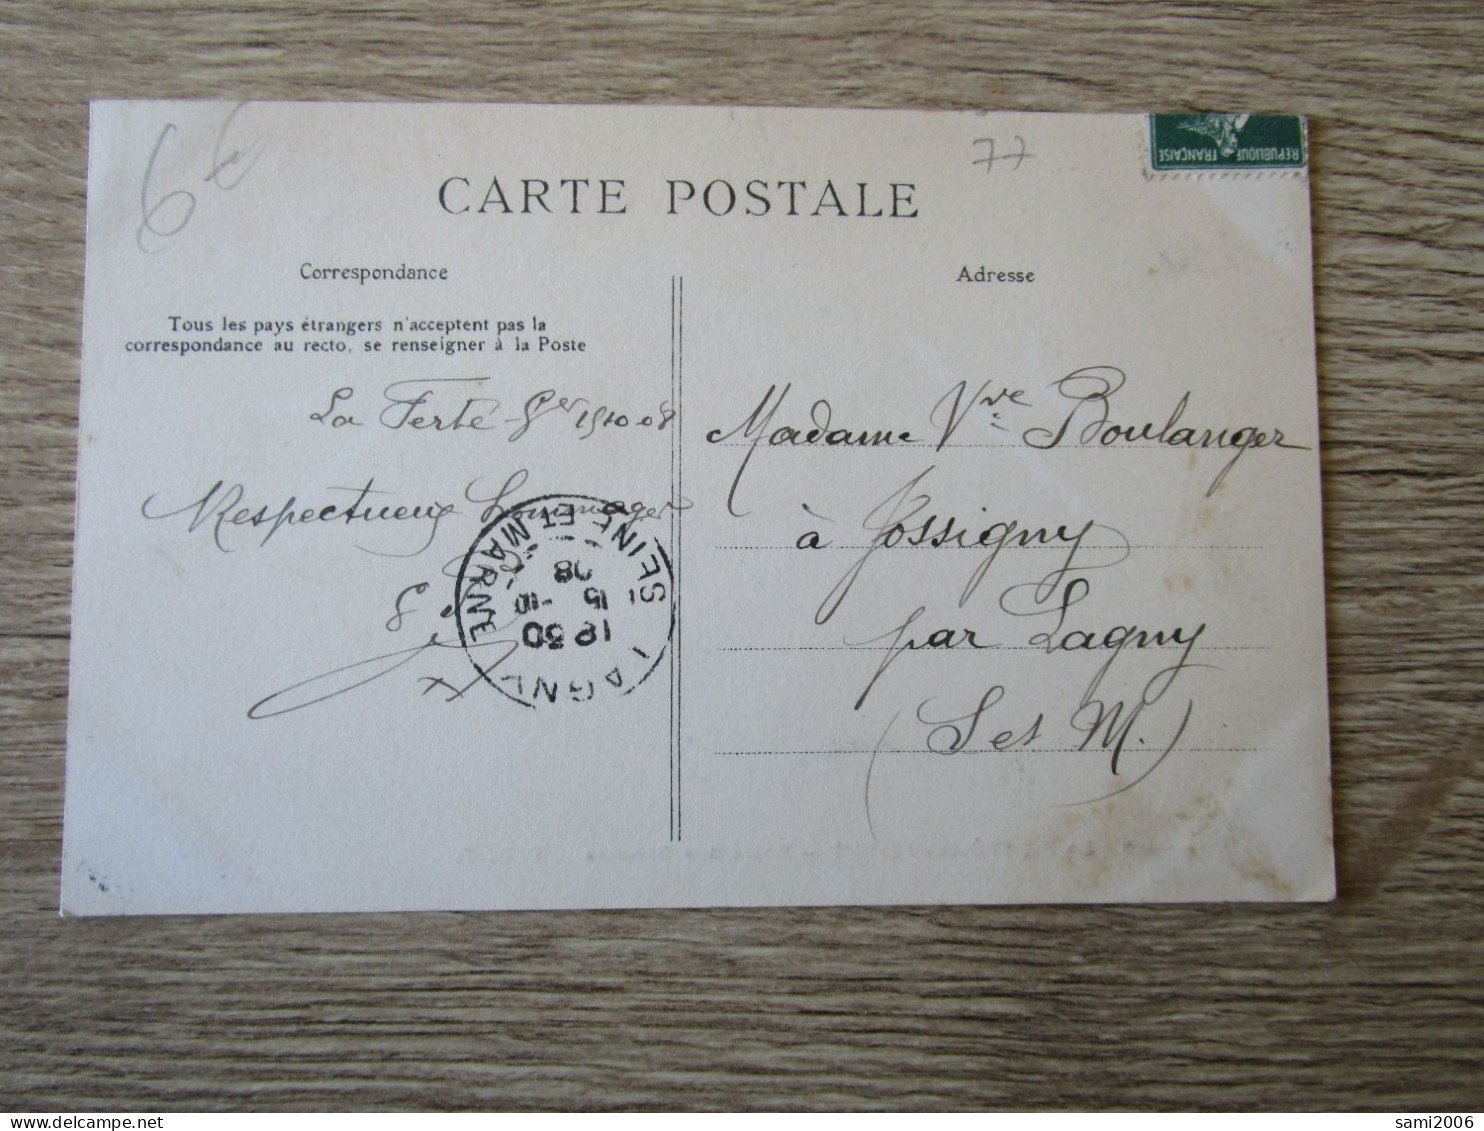 6€
77
REPUBLIQUE FRANÇAISE
CARTE POSTALE
Correspondance
Tous les pays étrangers n'acceptent pas la
correspondance au recto, se renseigner à la Poste
La Ferté-Ger 15 10 08
Respectueux hommages
SEINE ET MARNE
LAGNY
12 30
15 -10
08
Adresse
Madame Vve Boulanger
à Jossigny
par Lagny
(S et M.)
sami2006